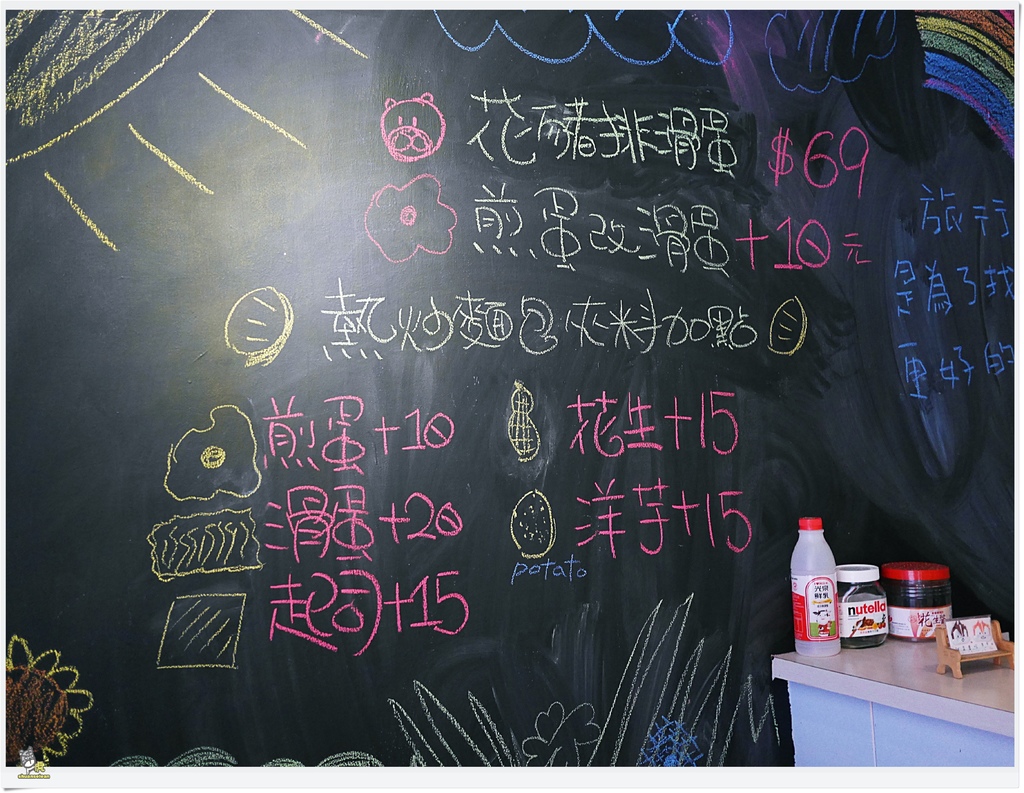 花豬排滑蛋 $69
煎蛋改滑蛋+10元
熱炒麵包夾料加點
煎蛋+10
滑蛋+20
起司+15
花生+15
洋芋+15
potato
旅行
是為了找
更好的
nutella
花生